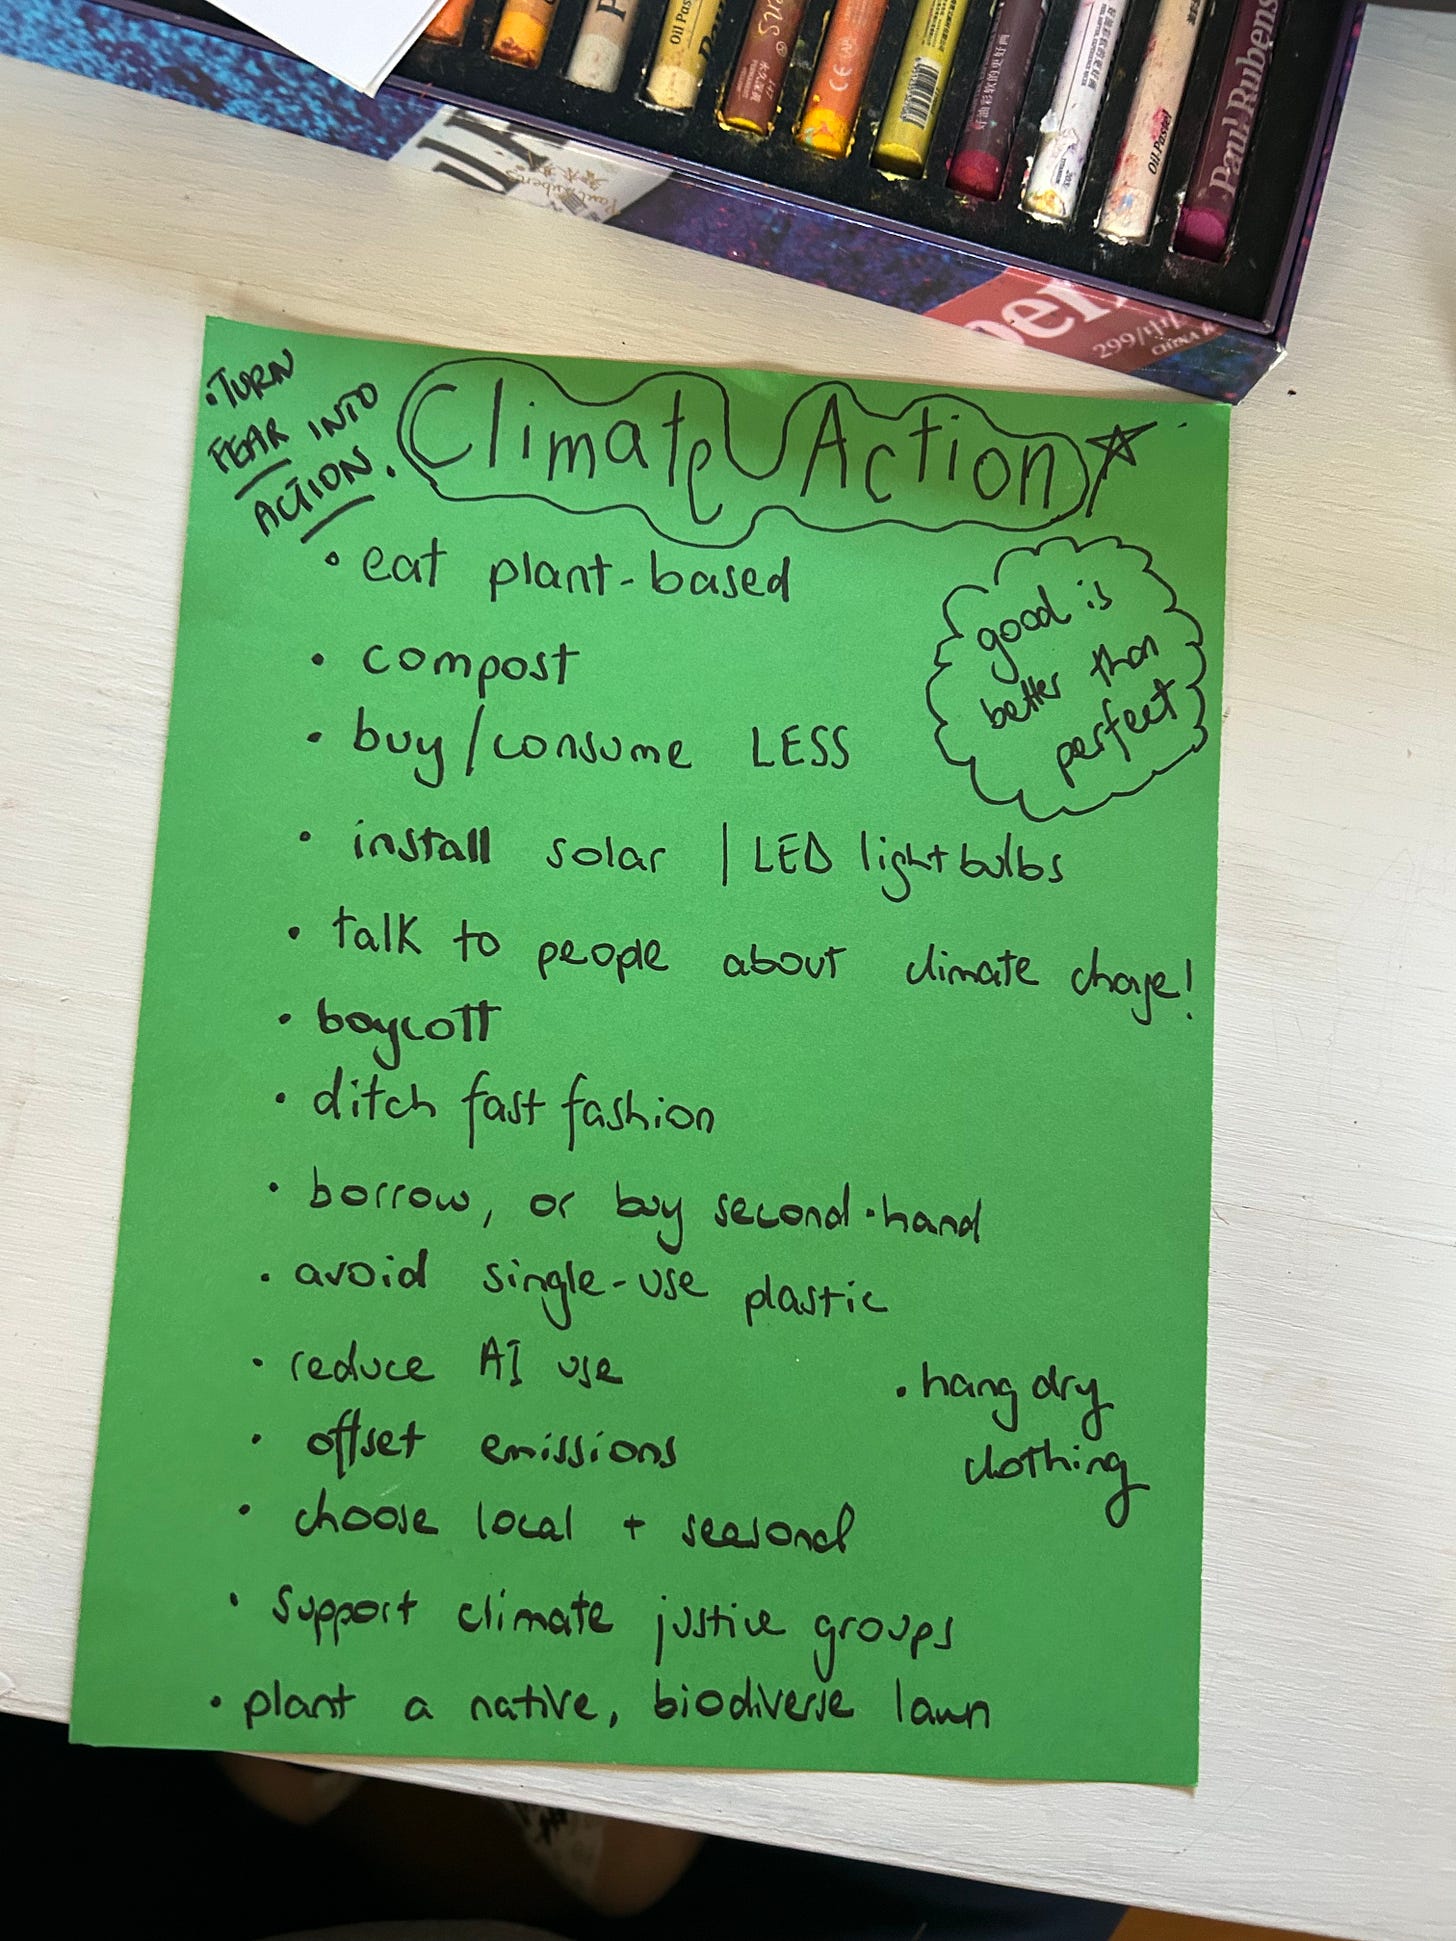 Oil Pas
Oil Pastel
Paul Rubens
299/
• TURN
FEAR INTO
ACTION.
Climate Action
• eat plant-based
good is
better than
perfect
• compost
• buy/consume LESS
• install solar | LED lightbulbs
• talk to people about climate change!
• boycott
• ditch fast fashion
• borrow, or buy second-hand
• avoid single-use plastic
• reduce AI use
• hang dry
clothing
• offset emissions
• choose local + seasonal
• support climate justice groups
• plant a native, biodiverse lawn